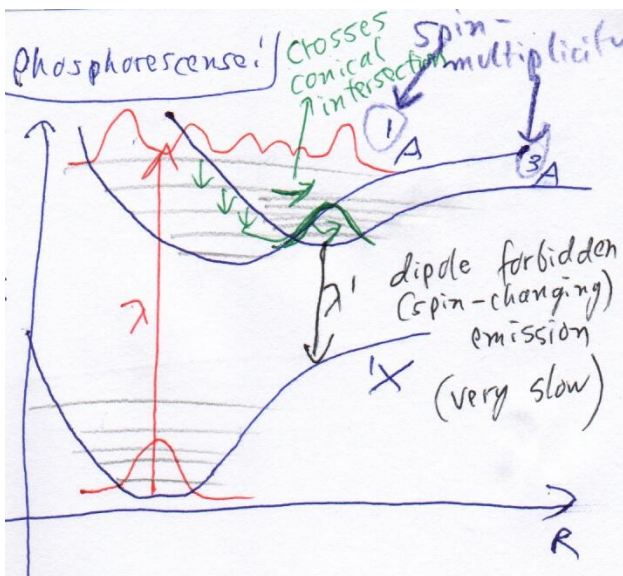 Phosphorescense!
Crosses
conical
intersection
Spin-
multiplicity
1
A
3
A
λ
λ'
dipole forbidden
(spin-changing)
emission
(very slow)
1X
R